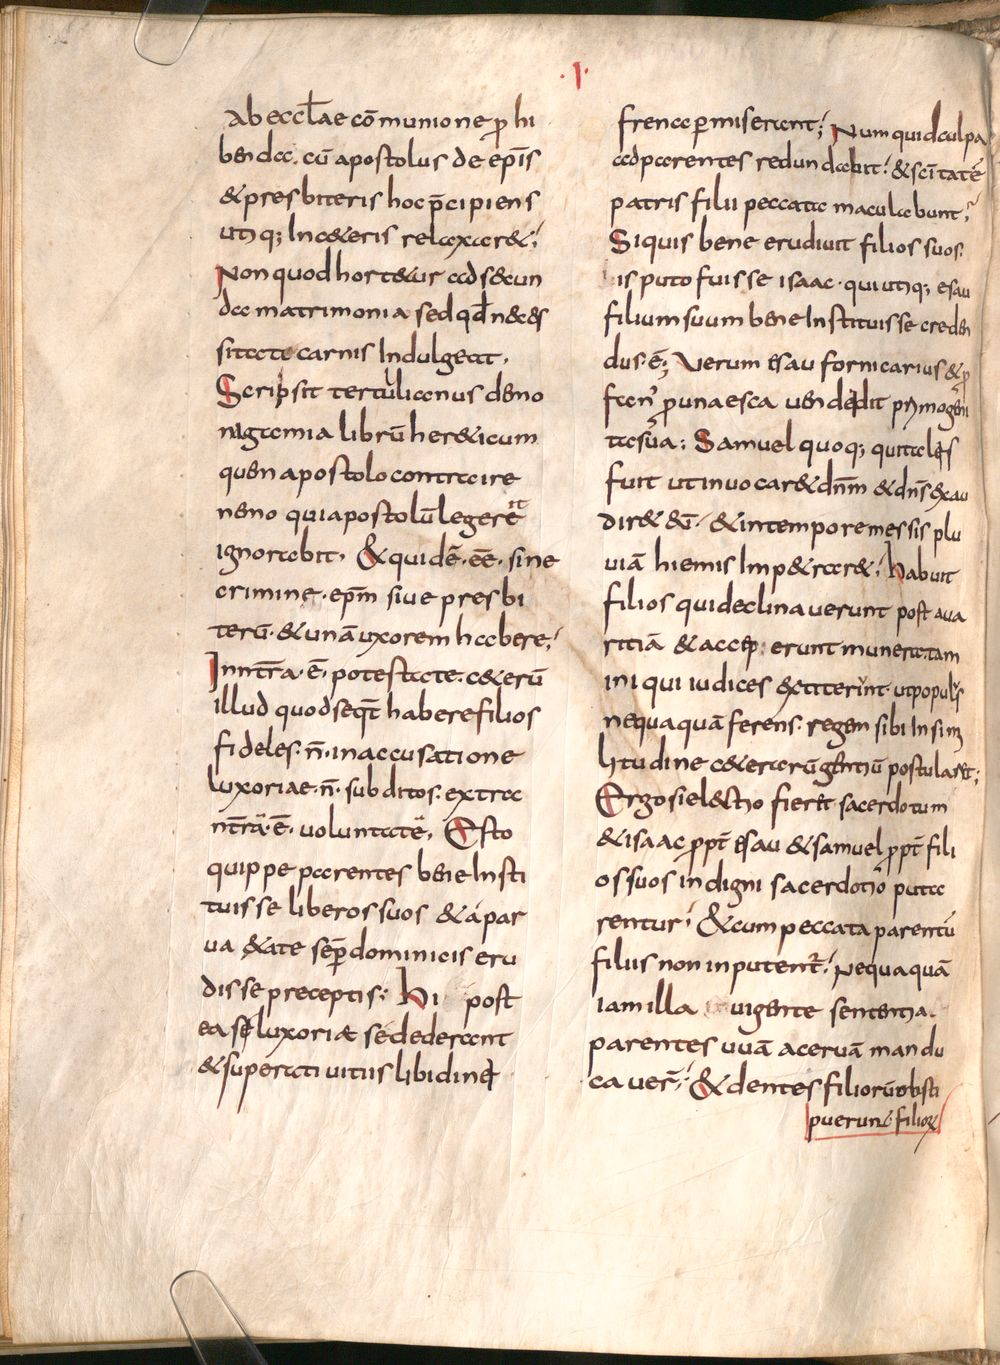 ·I·
ab eccłae cōmunione ꝓhi
bendae. cū apostolus de ep̄is
& presbiteris hoc p̄cipiens
utiq; In c&eris relaxar&;
Non quod hort&ur ad s&cun
da matrimonia sed qđ n&c&s
sitate carnis Indulgeat.
Scripsit tertulianus de mo
nogamia librū her&icum
quem apostolo contraire
nemo qui apostolū legerit
ignorabit. & quidē. eē. sine
crimine. ep̄m siue presbi
terū. & unā uxorem habere;
In nr̄a. ē. potestate. c&erū
illud quod seq̄t habere filios
fideles. n̄. in accusatione
luxoriae. n̄. subditos. extra
nr̄ā. ē. uoluntatē. Esto
quippe parentes bene Insti
tuisse liberos suos & a par
ua &ate sēp dominicis eru
disse preceptis; Hi post
ea se luxoriae sedederant
& superati uitiis libidinū
frena permiserant; Num quid culpa
ad parentes redundabit? & sc̄itatē
patris filii peccata maculabunt;
Siquis bene erudiuit filios suos.
is puto fuisse isaac. qui utiq; esau
filium suum bene Instituisse creden
dus. ē; Verum esau fornicarius & ꝓ
fan' ꝓ una esca uendedit primogeni
ta sua; Samuel quoq; qui talis
fuit ut inuocar& dn̄m & dn̄s exau
dir& eū. & in tempore messis plu
uiā hiemis Imp&rar&; habuit
filios qui declinauerunt post aua
ritiā & acceperunt munera. tam
iniqui iudices extiterint. ut populus
nequaquā ferens. regem sibi In sim
litudine c&erarū gentiū postularet;
Ergo si electio fieret sacerdotum
& isaac ꝓpt̄ esau & samuel ꝓpt̄ fili
os suos indigni sacerdotio puta
rentur; & cum peccata parentū
filiis non inputent̄; Nequaquā
iam illa uigente sententia.
parentes uuā aceruā mandu
cauer̄; & dentes filiorū obsti
puerunt. filioꝝ